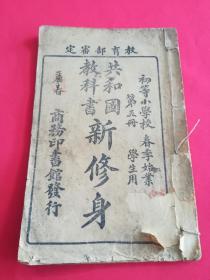 教育部審定
初等小學校 春季始業
第五冊 學生用
共和國
教科書
新修身
商務印書館發行